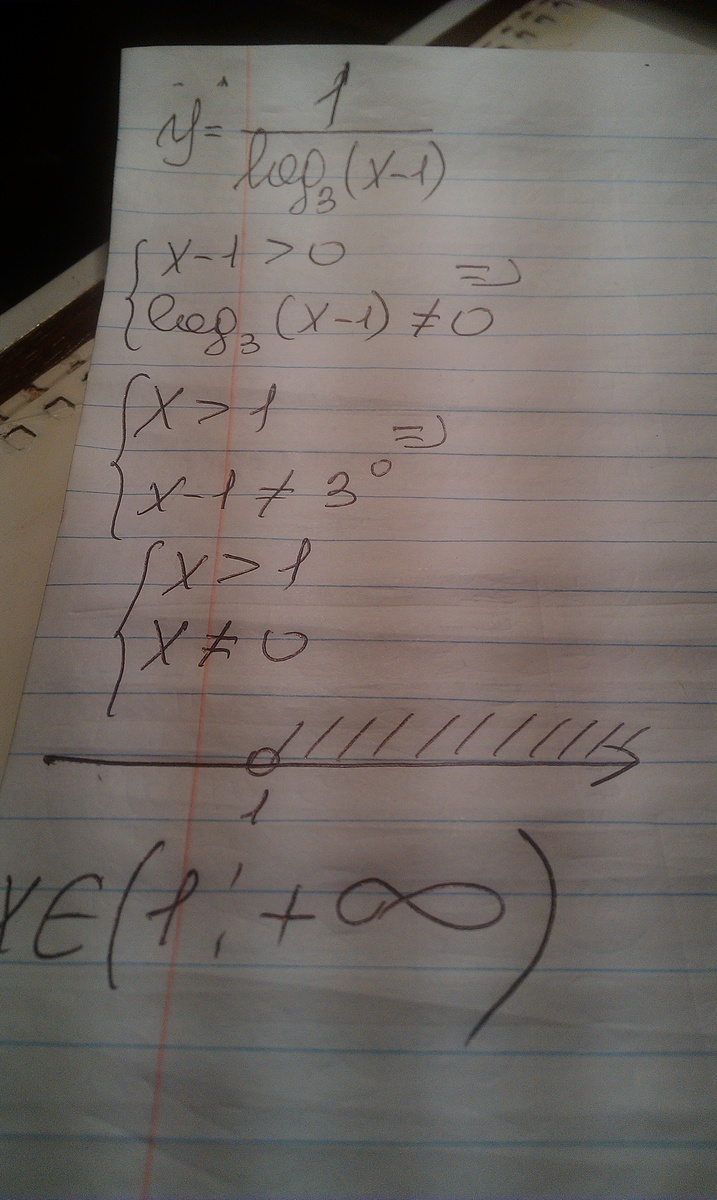 y = 1 / log₃(x-1)
{ x-1 > 0
{ log₃(x-1) ≠ 0 =>
{ x > 1
{ x-1 ≠ 3⁰ =>
{ x > 1
{ x ≠ 0
1
x ∈ (1; +∞)